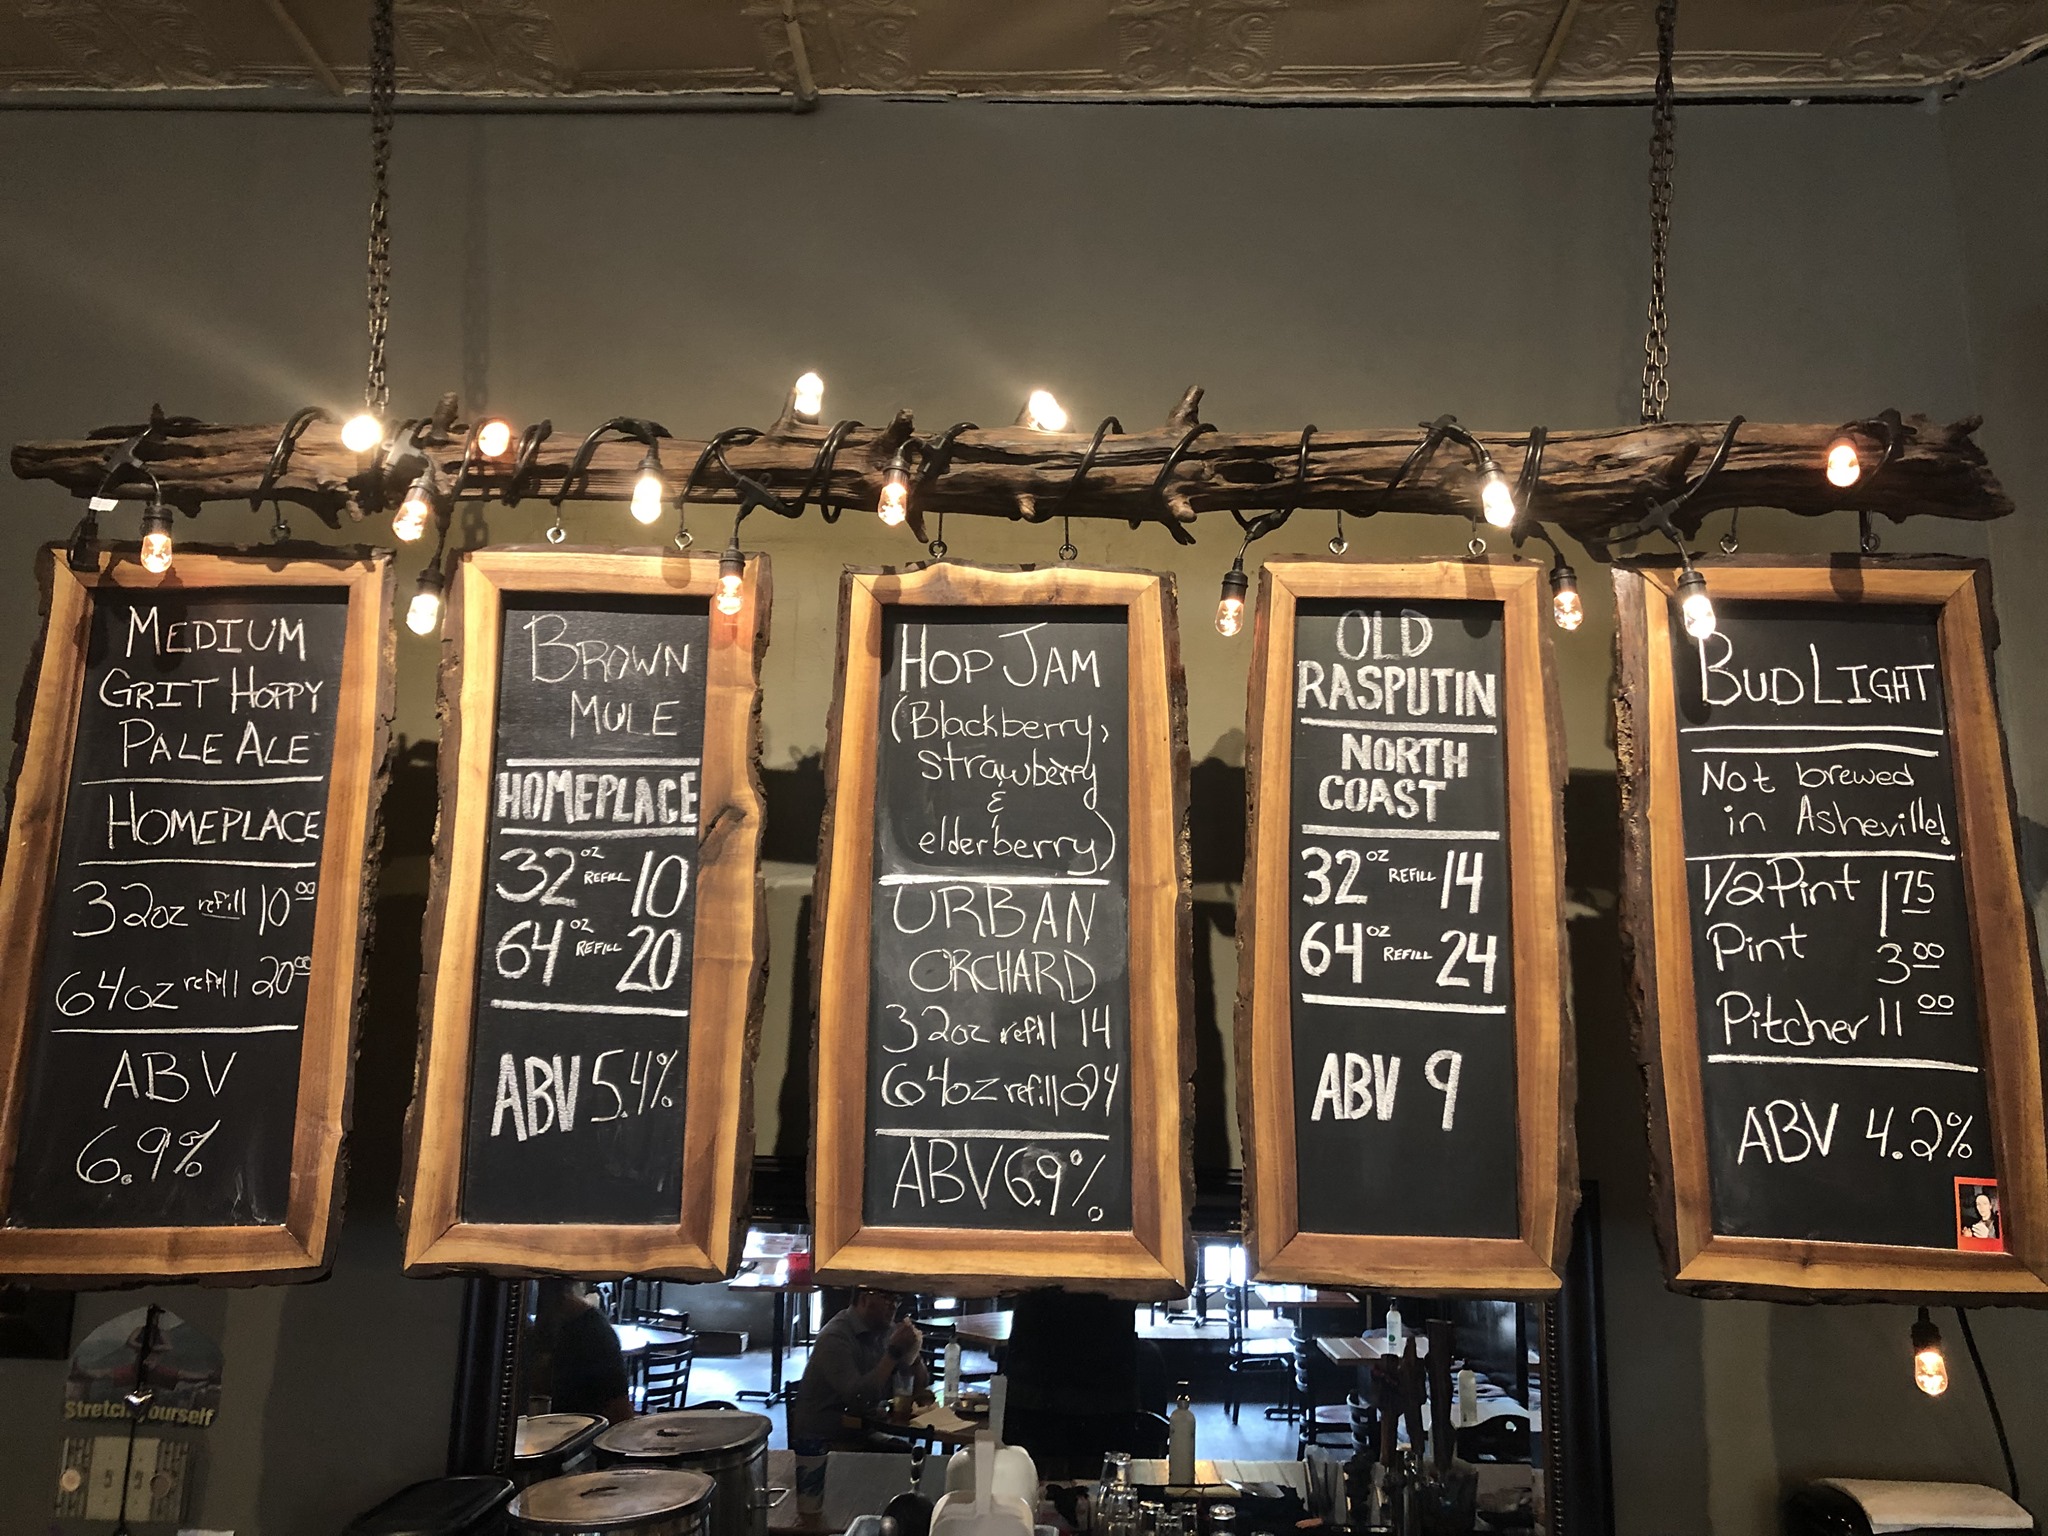 MEDIUM
GRIT HOPPY
PALE ALE
HOMEPLACE
32oz refill 10.00
64oz refill 20.00
ABV
6.9%
BROWN
MULE
HOMEPLACE
32 oz REFILL 10
64 oz REFILL 20
ABV 5.4%
HOP JAM
(Blackberry,
strawberry
&
elderberry)
URBAN
ORCHARD
32oz refill 14
64oz refill 24
ABV 6.9%
OLD
RASPUTIN
NORTH
COAST
32 oz REFILL 14
64 oz REFILL 24
ABV 9
BUD LIGHT
Not brewed
in Asheville!
1/2 Pint 1 75
Pint 3 00
Pitcher 11 00
ABV 4.2%
Stretch yourself